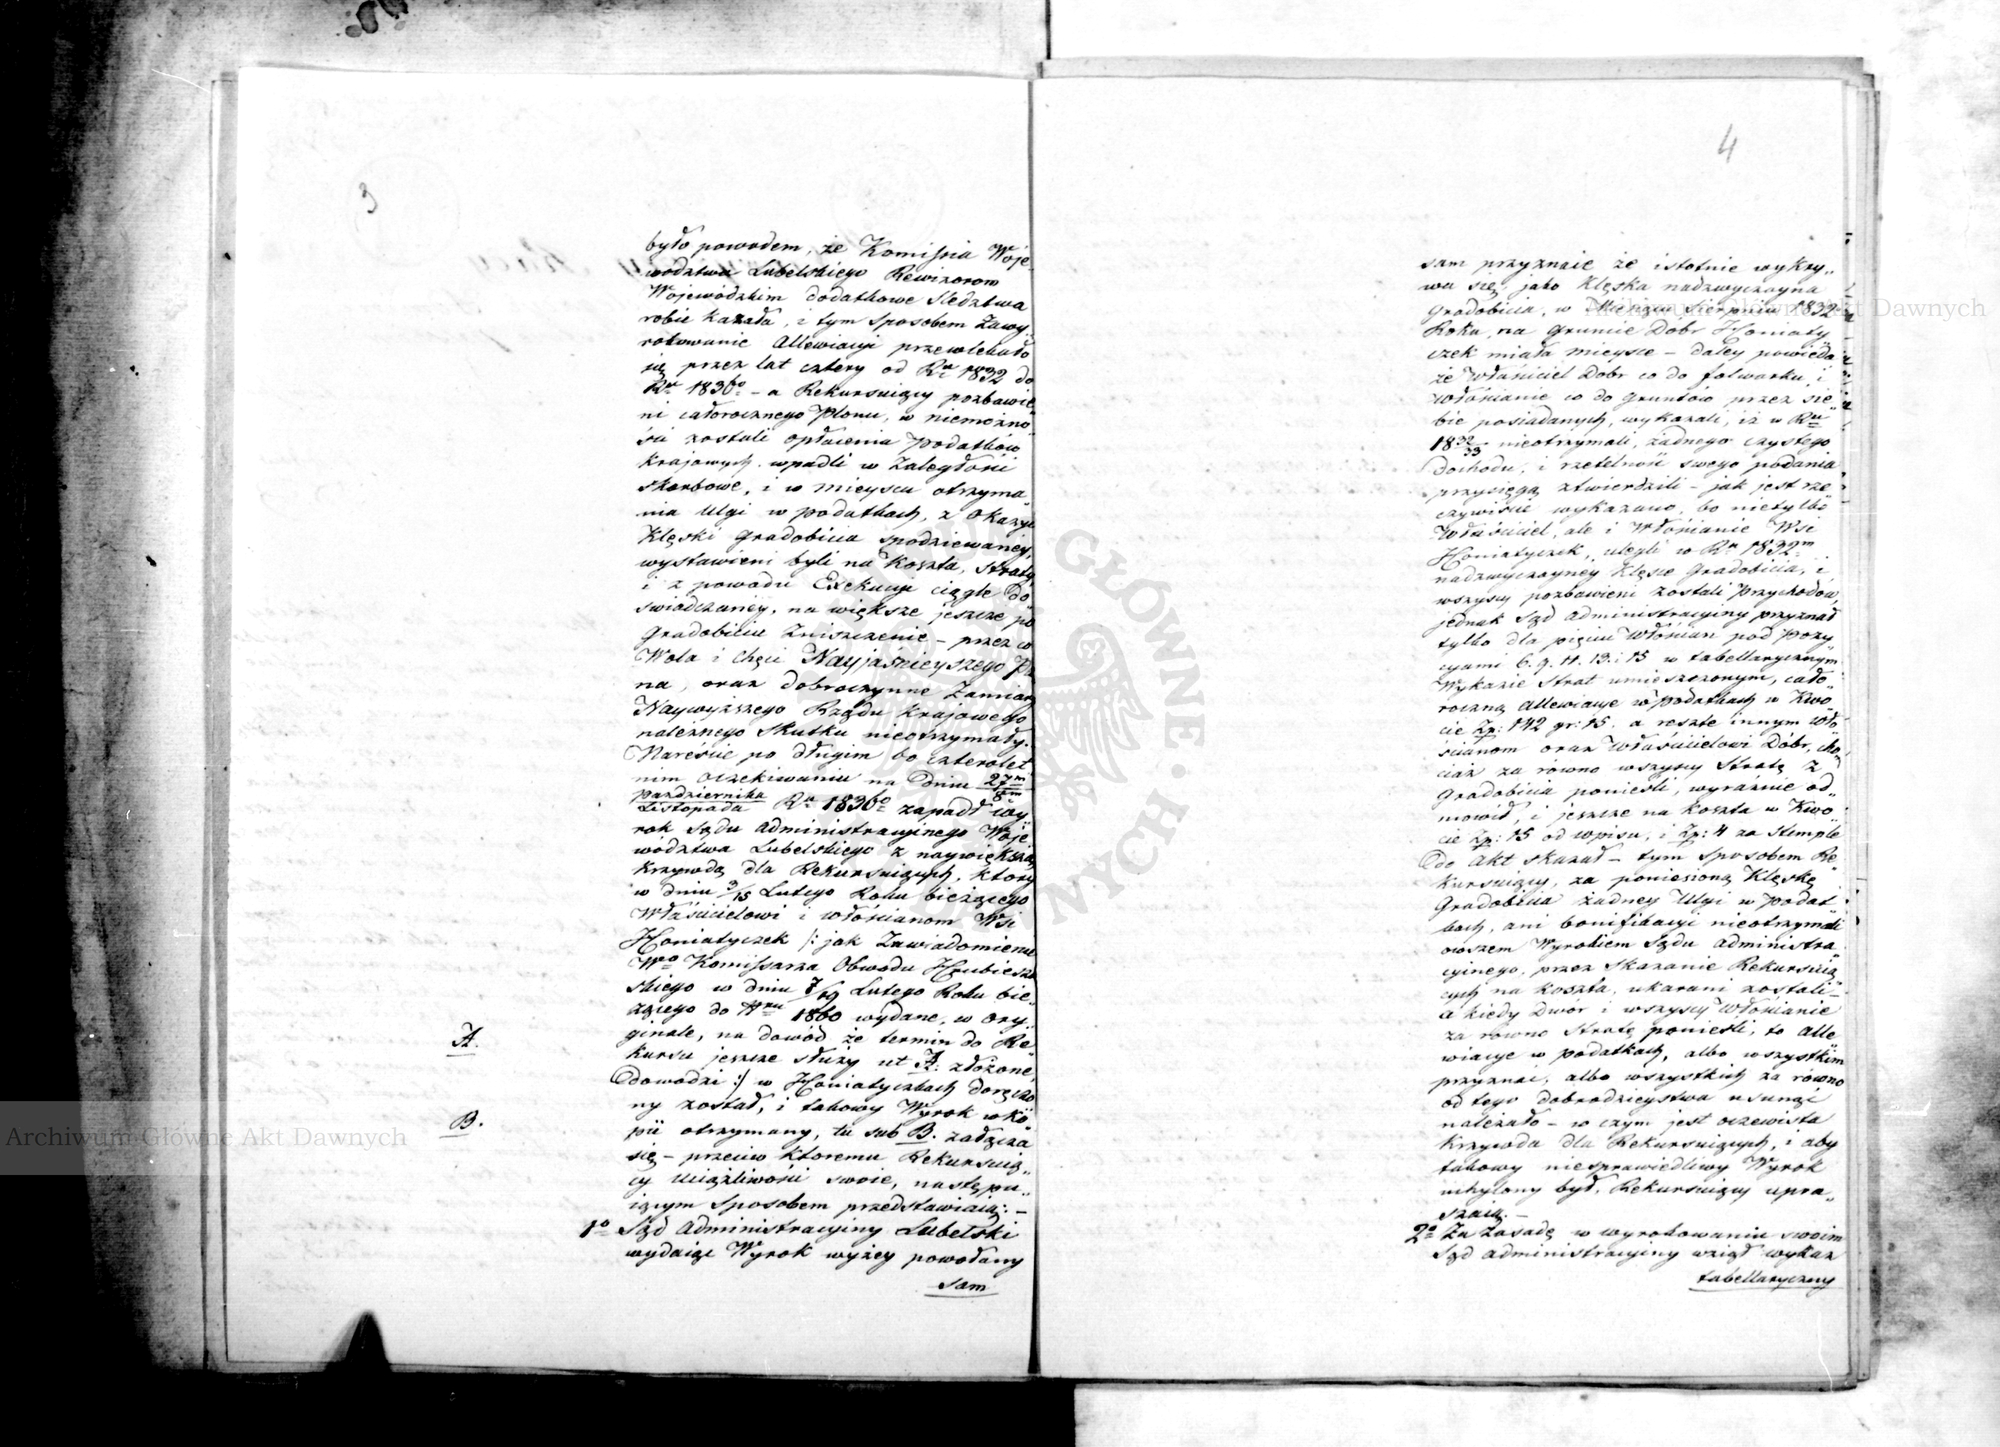 3
było powodem, że Komissia Woje„
wodztwa Lubelskiego Rewizorom
Wojewódzkim dodatkowe śledztwa
robić kazała, i tym sposobem zawy„
rokowanie Allewiacyi przewlekało
się przez lat cztery od Ru 1832 do
Ru 1836o – a Rekursuiący pozbawie„
ni całorocznego plonu, w niemożno„
ści zostali opłacenia podatków
krajowych wpadli w zaległości
skarbowe, i w mieyscu otrzyma„
nia ulgi w podatkach, z okazyi
klęski gradobicia spodziewaney,
wystawieni byli na koszta, straty
i z powodu Exekucyi ciągle do„
świadczaney, na większe jeszcze po
gradobiciu zniszczenie – przez co
Wola i chęci Nayjaśnieyszego Pa
na, oraz dobroczynne zamiary
Naywyższego Rządu krajowego
należnego skutku nieotrzymały.
Nareście po długim bo czterolet
nim oczekiwaniu na dniu 27m
Października 8m
Listopada Ru 1836o zapadł wy„
rok Sądu Administracyinego Woje„
wództwa Lubelskiego z naywiększą
krzywdą dla Rekursuiących, ktory
w dniu 3/15 Lutego Roku bieżącego
Właścicielowi i włościanom Wsi
Honiatyczek /: jak zawiadomienie
Wgo Komissarza Obwodu Hrubiesz
skiego w dniu 7/19 Lutego Roku bie„
żącego do Nru 1860 wydane, w ory„
ginale, na dowód że termin do Re„
kursu jeszcze służy ut A. złożone,
dowodzi :/ w Honiatyczkach doręczo
ny został, i takowy Wyrok w ko„
pii otrzymany, tu sub B. załącza
się – przeciw ktoremu Rekursuią„
cy uciążliwości swoie, następu„
iącym sposobem przedstawiaią: –
1o Sąd Administracyiny Lubelski
wydaiąc Wyrok wyżey powołany
sam
A.
B.
4
sam przyznaie że istotnie wykry„
wa się, jako klęska nadzwyczayna
gradobicia, w Miesiącu Sierpniu 1832
Roku, na gruncie Dóbr Honiaty„
czek miała mieysce – daley powiada
że Właściciel Dóbr co do folwarku i
włościanie co do gruntow przez sie„
bie posiadanych, wykazali, iż w Ru
1832/33 nieotrzymali, żadnego czystego
dochodu, i rzetelność swego podania
przysięgą ztwierdzili – jak jest rze„
czywiście wykazano, bo nietylko
Właściciel, ale i Włościanie Wsi
Honiatyczek, ulegli w Ru 1832m
nadzwyczayney klęsce gradobicia, i
wszyscy pozbawieni zostali przychodów,
jednak Sąd Administracyiny przyznał
tylko dla pięciu Włościan pod pozy„
cyami 6. 9. 11. 13. i 15 w tabellarycznym
Wykazie strat umieszczonym, cało„
roczną Allewiacye w podatkach w kwo„
cie Zp: 142 gr: 15. a reszte innym wło„
ścianom oraz Właścicielowi Dóbr, cho„
ciaż za równo wszyscy stratę z
gradobicia ponieśli, wyraźnie od„
mowił, i jeszcze na koszta w kwo„
cie Zp: 15 od wpisu, i Zp: 4 za stemple
do Akt skazał – tym sposobem Re„
kursuiący, za poniesioną klęskę
gradobicia żadney ulgi w podat
kach, ani bonifikacyi nieotrzymali
owszem Wyrokiem Sądu Administra„
cyinego, przez skazanie Rekursuią
cych na koszta, ukarani zostali –
a kiedy Dwór i wszyscy Włościanie
za równo stratę ponieśli, to Alle„
wiacye w podatkach, albo wszystkim
przyznać, albo wszystkich za równo
od tego dobrodzieystwa usunąć
należało – w czym jest oczewista
krzywda dla Rekursuiących, i aby
takowy niesprawiedliwy Wyrok
uchylony był, Rekursuiący upra„
szaią. –
2o Za zasadę w wyrokowaniu swoim
Sąd Administracyiny wziął wykaz
tabellaryczny
Archiwum Główne Akt Dawnych
Archiwum Główne Akt Dawnych